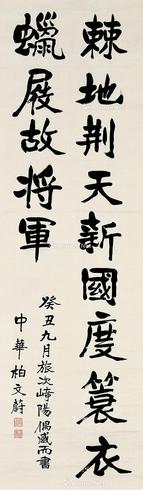 棘地荆天新國度簑衣
蠟屐故将軍
癸丑九月旅次崎陽偶感而書
中華柏文蔚